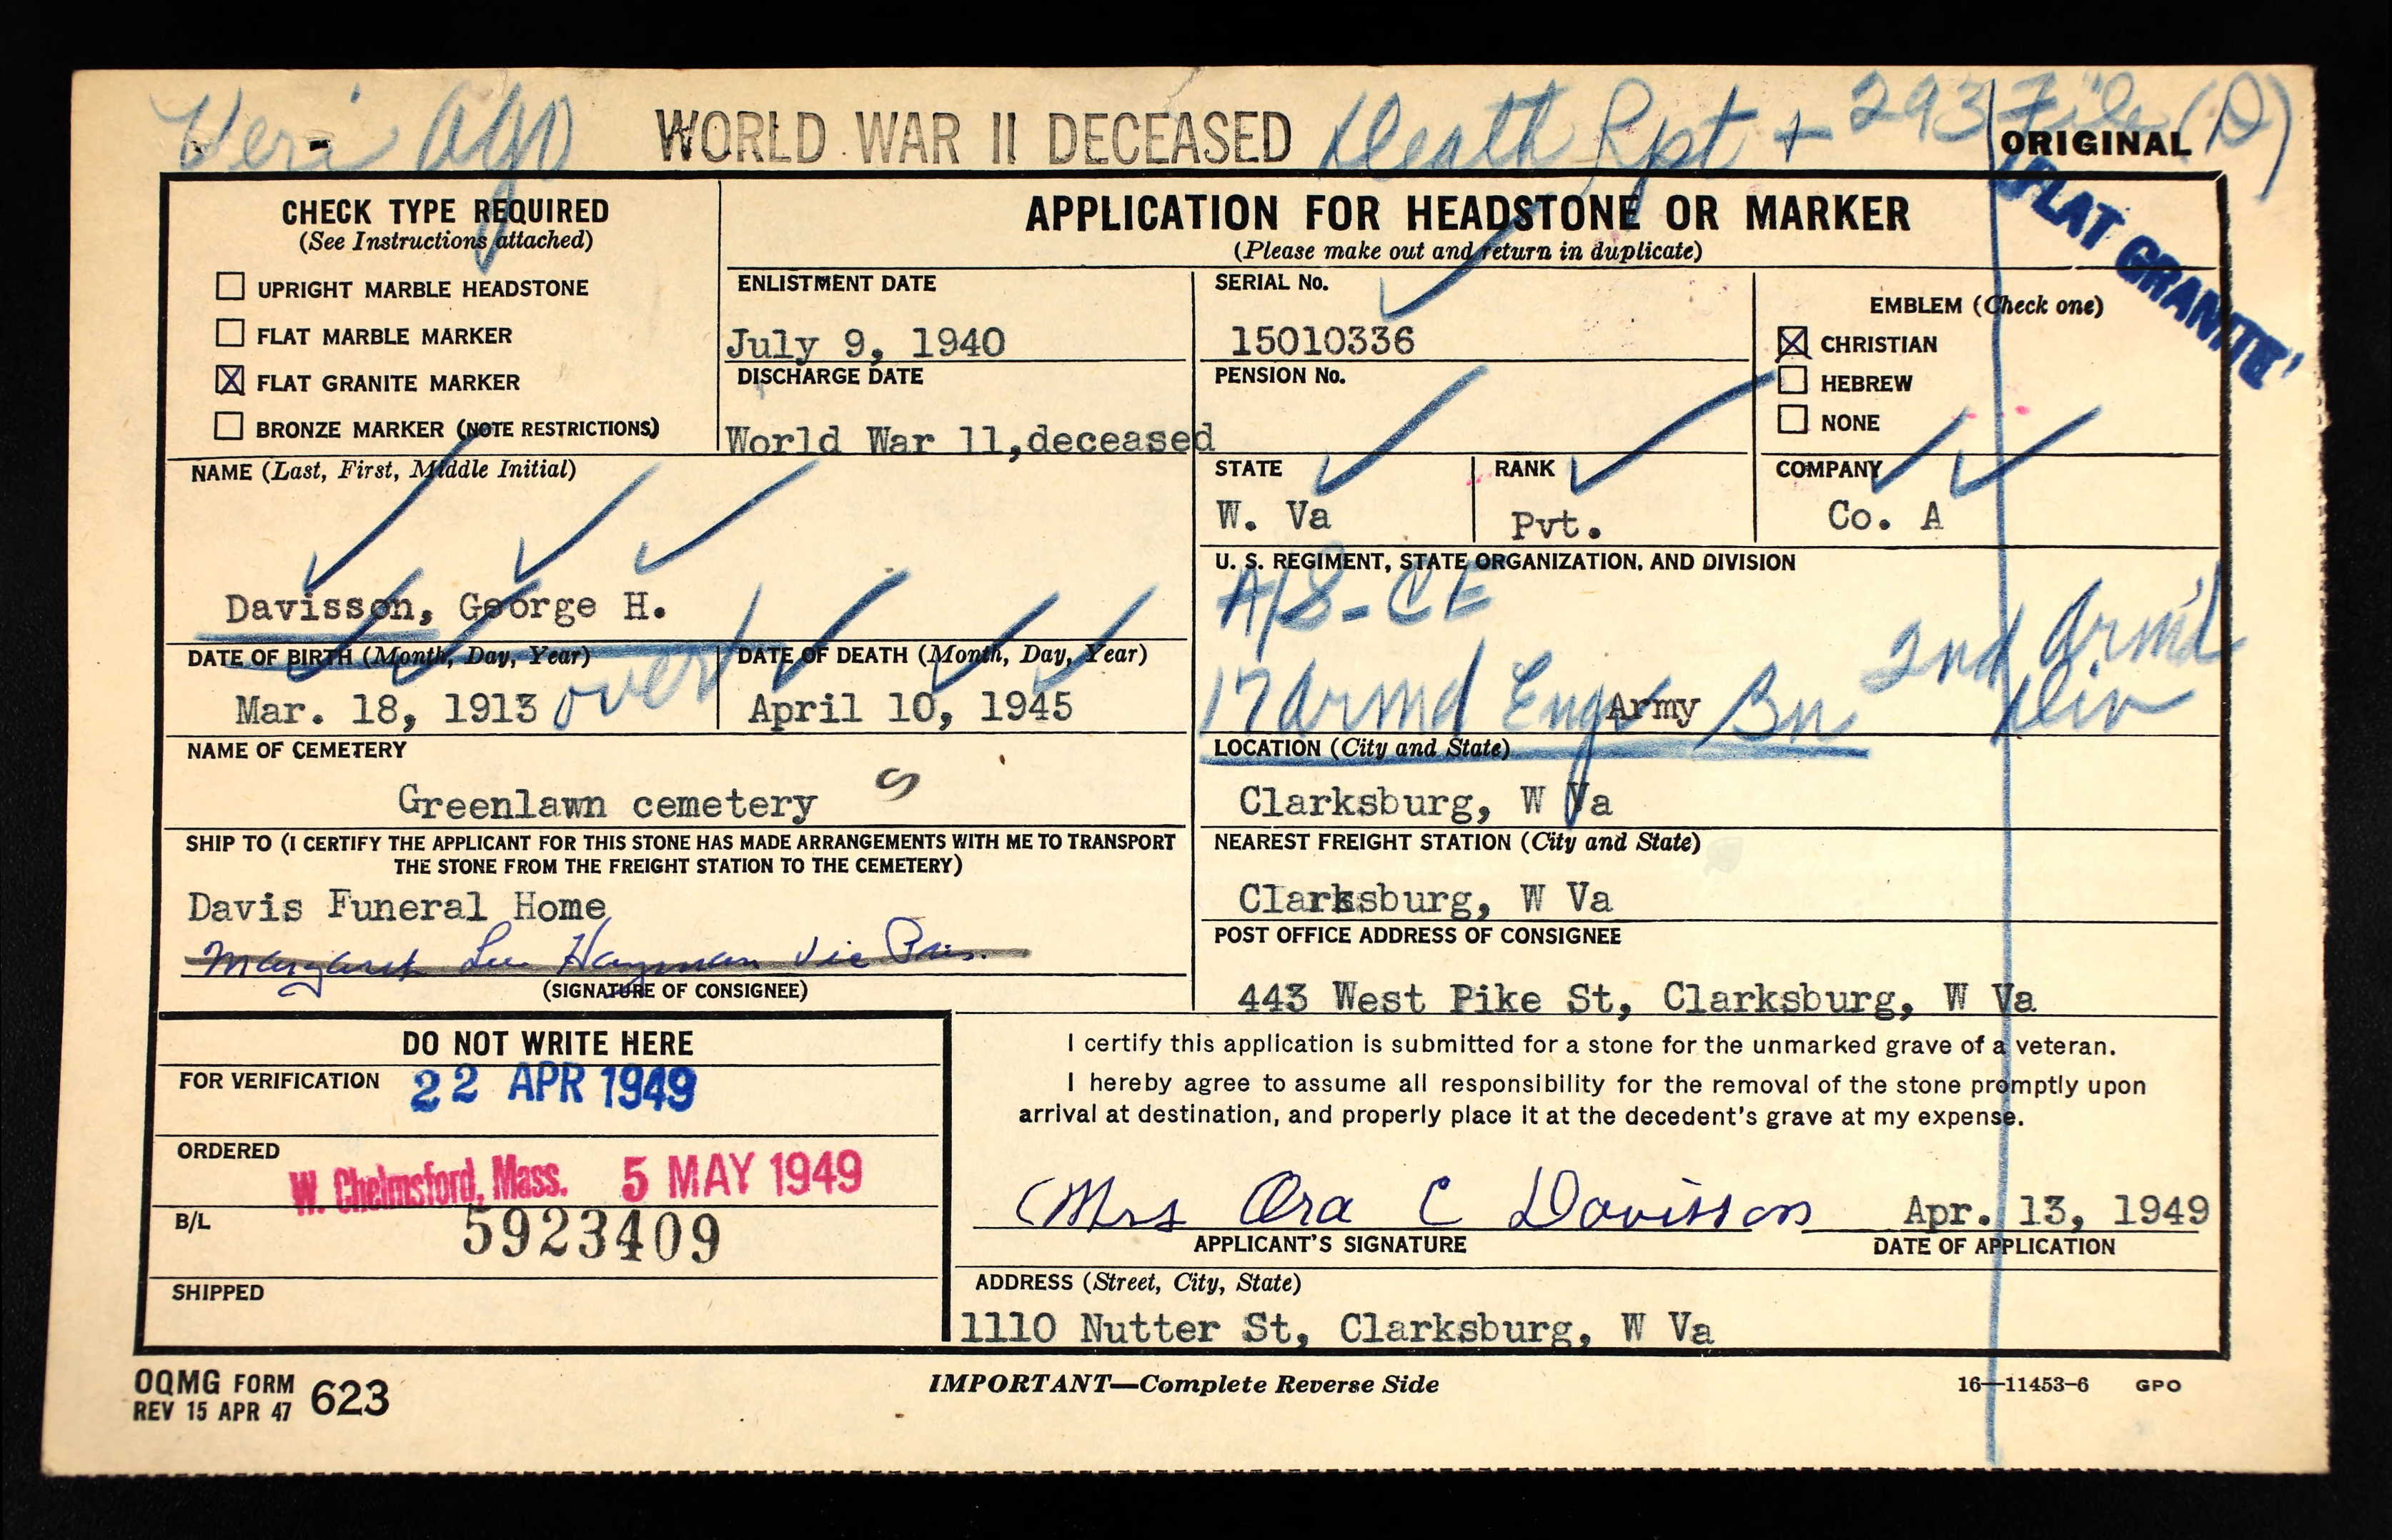 Veri AGO WORLD WAR II DECEASED Death Rpt + 293 File (D)
ORIGINAL
FLAT GRANITE
CHECK TYPE REQUIRED
(See Instructions attached)
☐ UPRIGHT MARBLE HEADSTONE
☐ FLAT MARBLE MARKER
☒ FLAT GRANITE MARKER
☐ BRONZE MARKER (NOTE RESTRICTIONS)
APPLICATION FOR HEADSTONE OR MARKER
(Please make out and return in duplicate)
ENLISTMENT DATE
July 9, 1940
DISCHARGE DATE
World War 11,deceased
SERIAL No.
15010336
PENSION No.
EMBLEM (Check one)
☒ CHRISTIAN
☐ HEBREW
☐ NONE
NAME (Last, First, Middle Initial)
Davisson, George H.
STATE
W. Va
RANK
Pvt.
COMPANY
Co. A
U. S. REGIMENT, STATE ORGANIZATION, AND DIVISION
A/S-CE
17 Armd Engr Army Bn 2nd Arm'd Div
DATE OF BIRTH (Month, Day, Year)
Mar. 18, 1913 over
DATE OF DEATH (Month, Day, Year)
April 10, 1945
NAME OF CEMETERY
Greenlawn cemetery
LOCATION (City and State)
Clarksburg, W Va
SHIP TO (I CERTIFY THE APPLICANT FOR THIS STONE HAS MADE ARRANGEMENTS WITH ME TO TRANSPORT
THE STONE FROM THE FREIGHT STATION TO THE CEMETERY)
Davis Funeral Home
Margaret Lee Hayman Vic Pres.
(SIGNATURE OF CONSIGNEE)
NEAREST FREIGHT STATION (City and State)
Clarksburg, W Va
POST OFFICE ADDRESS OF CONSIGNEE
443 West Pike St, Clarksburg, W Va
DO NOT WRITE HERE
FOR VERIFICATION 22 APR 1949
ORDERED
W. Chelmsford, Mass. 5 MAY 1949
B/L 5923409
SHIPPED
I certify this application is submitted for a stone for the unmarked grave of a veteran.
I hereby agree to assume all responsibility for the removal of the stone promptly upon
arrival at destination, and properly place it at the decedent's grave at my expense.
Mrs Ora C Davisson Apr. 13, 1949
APPLICANT'S SIGNATURE DATE OF APPLICATION
ADDRESS (Street, City, State)
1110 Nutter St, Clarksburg, W Va
OQMG FORM 623
REV 15 APR 47
IMPORTANT—Complete Reverse Side
16—11453-6 GPO